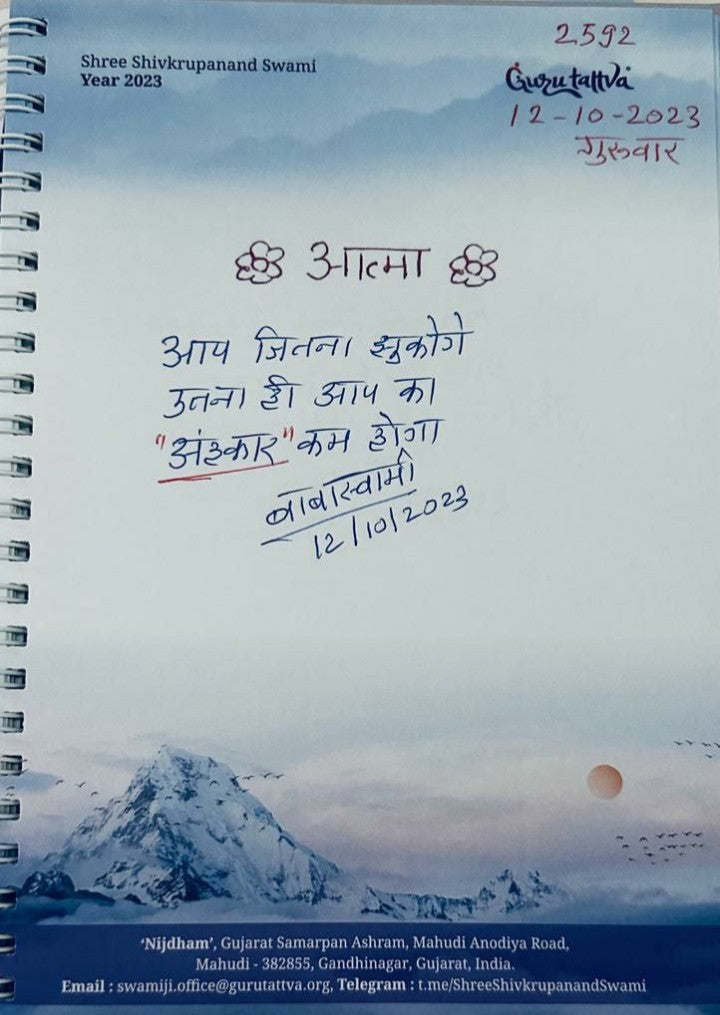 2592
Shree Shivkrupanand Swami
Year 2023
Gurutattva
12-10-2023
गुरूवार
आत्मा
आप जितना झुकोगे
उतना ही आप का
"अंहकार" कम होगा
बाबास्वामी
12/10/2023
'Nijdham', Gujarat Samarpan Ashram, Mahudi Anodiya Road,
Mahudi - 382855, Gandhinagar, Gujarat, India.
Email : swamiji.office@gurutattva.org, Telegram : t.me/ShreeShivkrupanandSwami